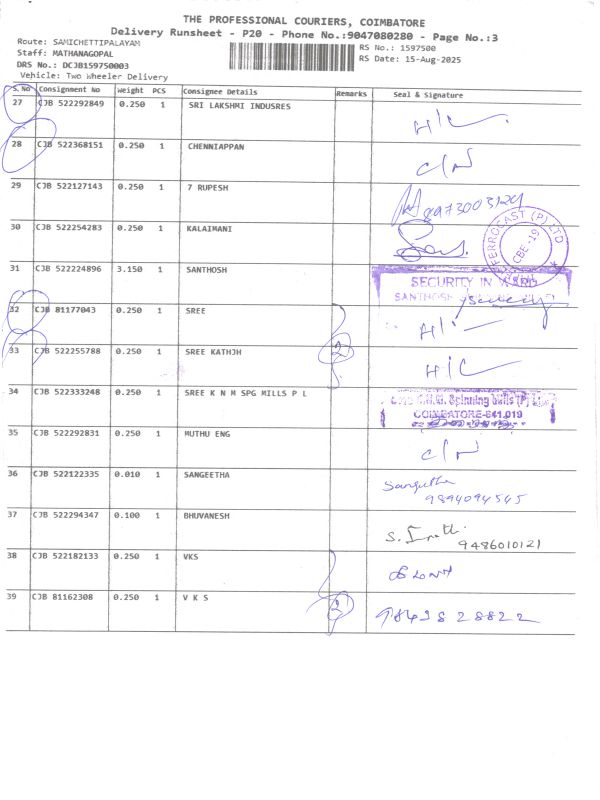 THE PROFESSIONAL COURIERS, COIMBATORE
Delivery Runsheet - P20 - Phone No.:9047080280 - Page No.:3
Route: SAMICHETTIPALAYAM
Staff: MATHANAGOPAL
RS No.: 1597500
DRS No.: DCJB159750003
RS Date: 15-Aug-2025
Vehicle: Two Wheeler Delivery
S.No Consignment No Weight PCS Consignee Details Remarks Seal & Signature
27 CJB 522292849 0.250 1 SRI LAKSHMI INDUSRES
28 CJB 522368151 0.250 1 CHENNIAPPAN
29 CJB 522127143 0.250 1 7 RUPESH
30 CJB 522254283 0.250 1 KALAIMANI
FERROCAST (P) LTD
CBE-19
31 CJB 522224896 3.150 1 SANTHOSH
SECURITY IN WARD
SANTHOSH
32 CJB 81177043 0.250 1 SREE
33 CJB 522255788 0.250 1 SREE KATHJH 2
34 CJB 522333248 0.250 1 SREE K N M SPG MILLS P L
Spinning Mills (P) Ltd
COIMBATORE-641 019
35 CJB 522292831 0.250 1 MUTHU ENG
36 CJB 522122335 0.010 1 SANGEETHA Sangeetha
9894094545
37 CJB 522294347 0.100 1 BHUVANESH
9486010121
38 CJB 522182133 0.250 1 VKS
39 CJB 81162308 0.250 1 V K S 2 98428 28822